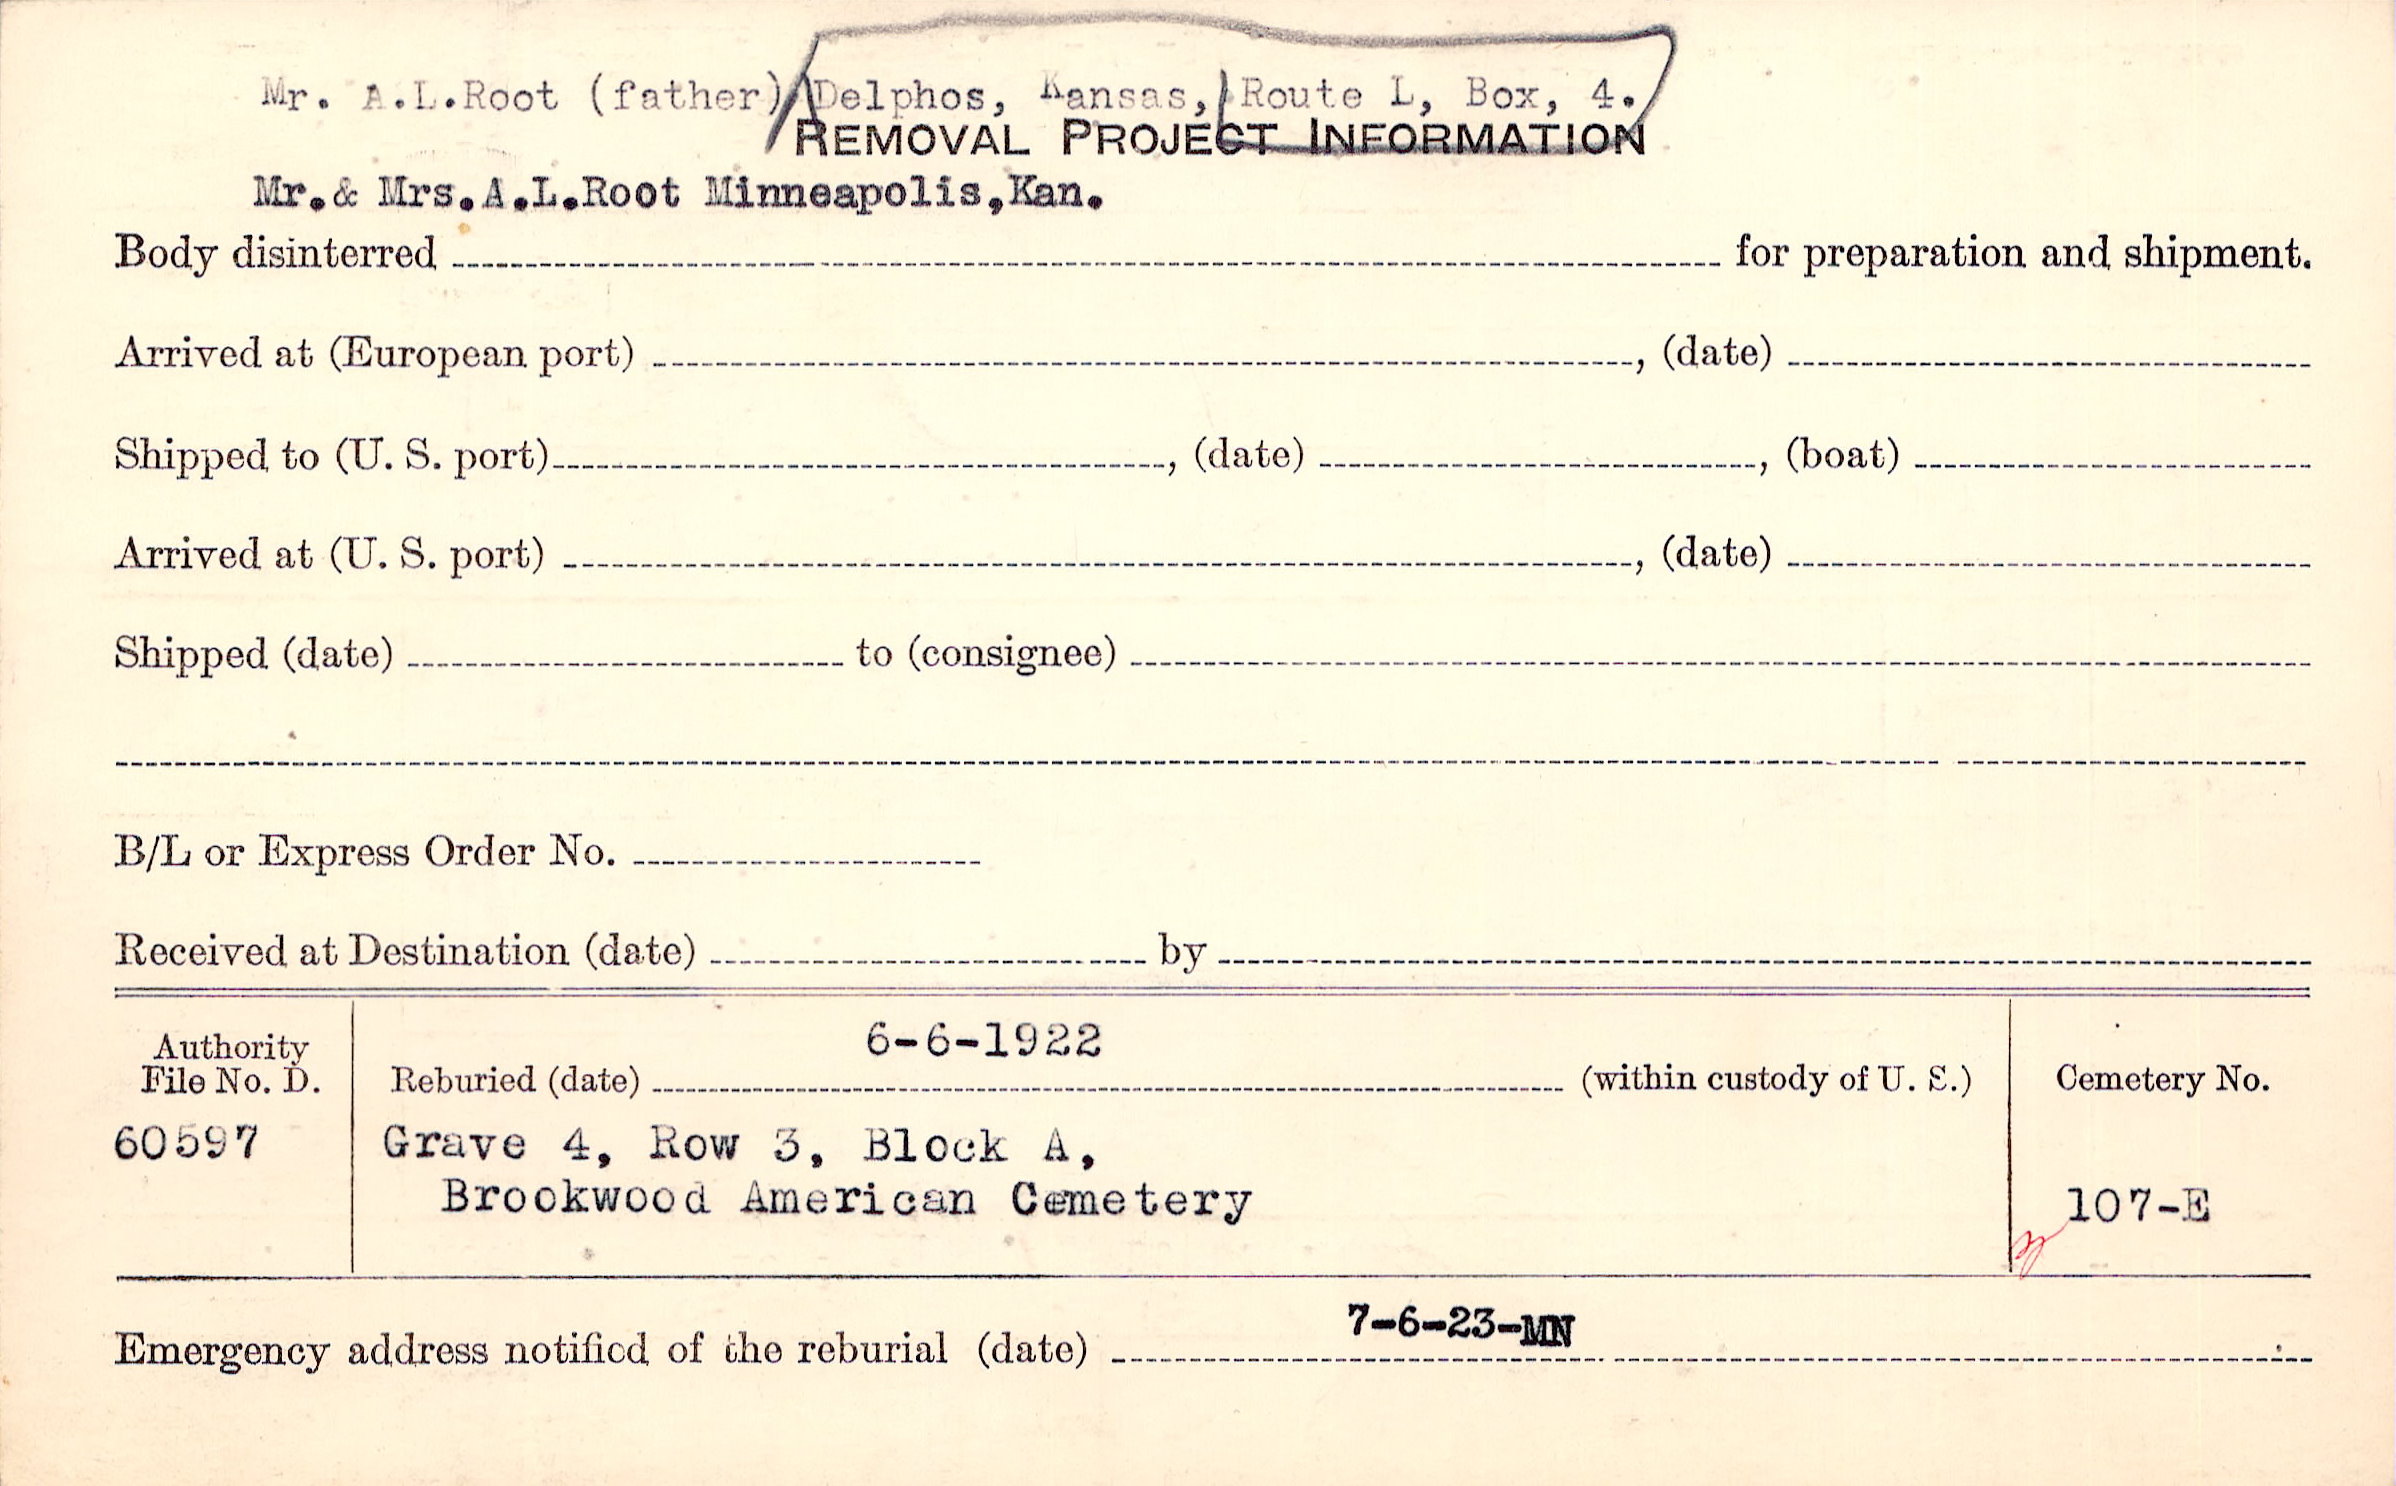 Mr. A.L.Root (father) Delphos, Kansas, Route L, Box, 4.
REMOVAL PROJECT INFORMATION
Mr.& Mrs.A.L.Root Minneapolis,Kan.
Body disinterred for preparation and shipment.
Arrived at (European port) , (date)
Shipped to (U. S. port) , (date) , (boat)
Arrived at (U. S. port) , (date)
Shipped (date) to (consignee)
B/L or Express Order No.
Received at Destination (date) by
Authority File No. D.
60597
6-6-1922
Reburied (date) (within custody of U. S.)
Grave 4, Row 3, Block A,
Brookwood American Cemetery
Cemetery No.
107-E
7-6-23-MN
Emergency address notified of the reburial (date) .